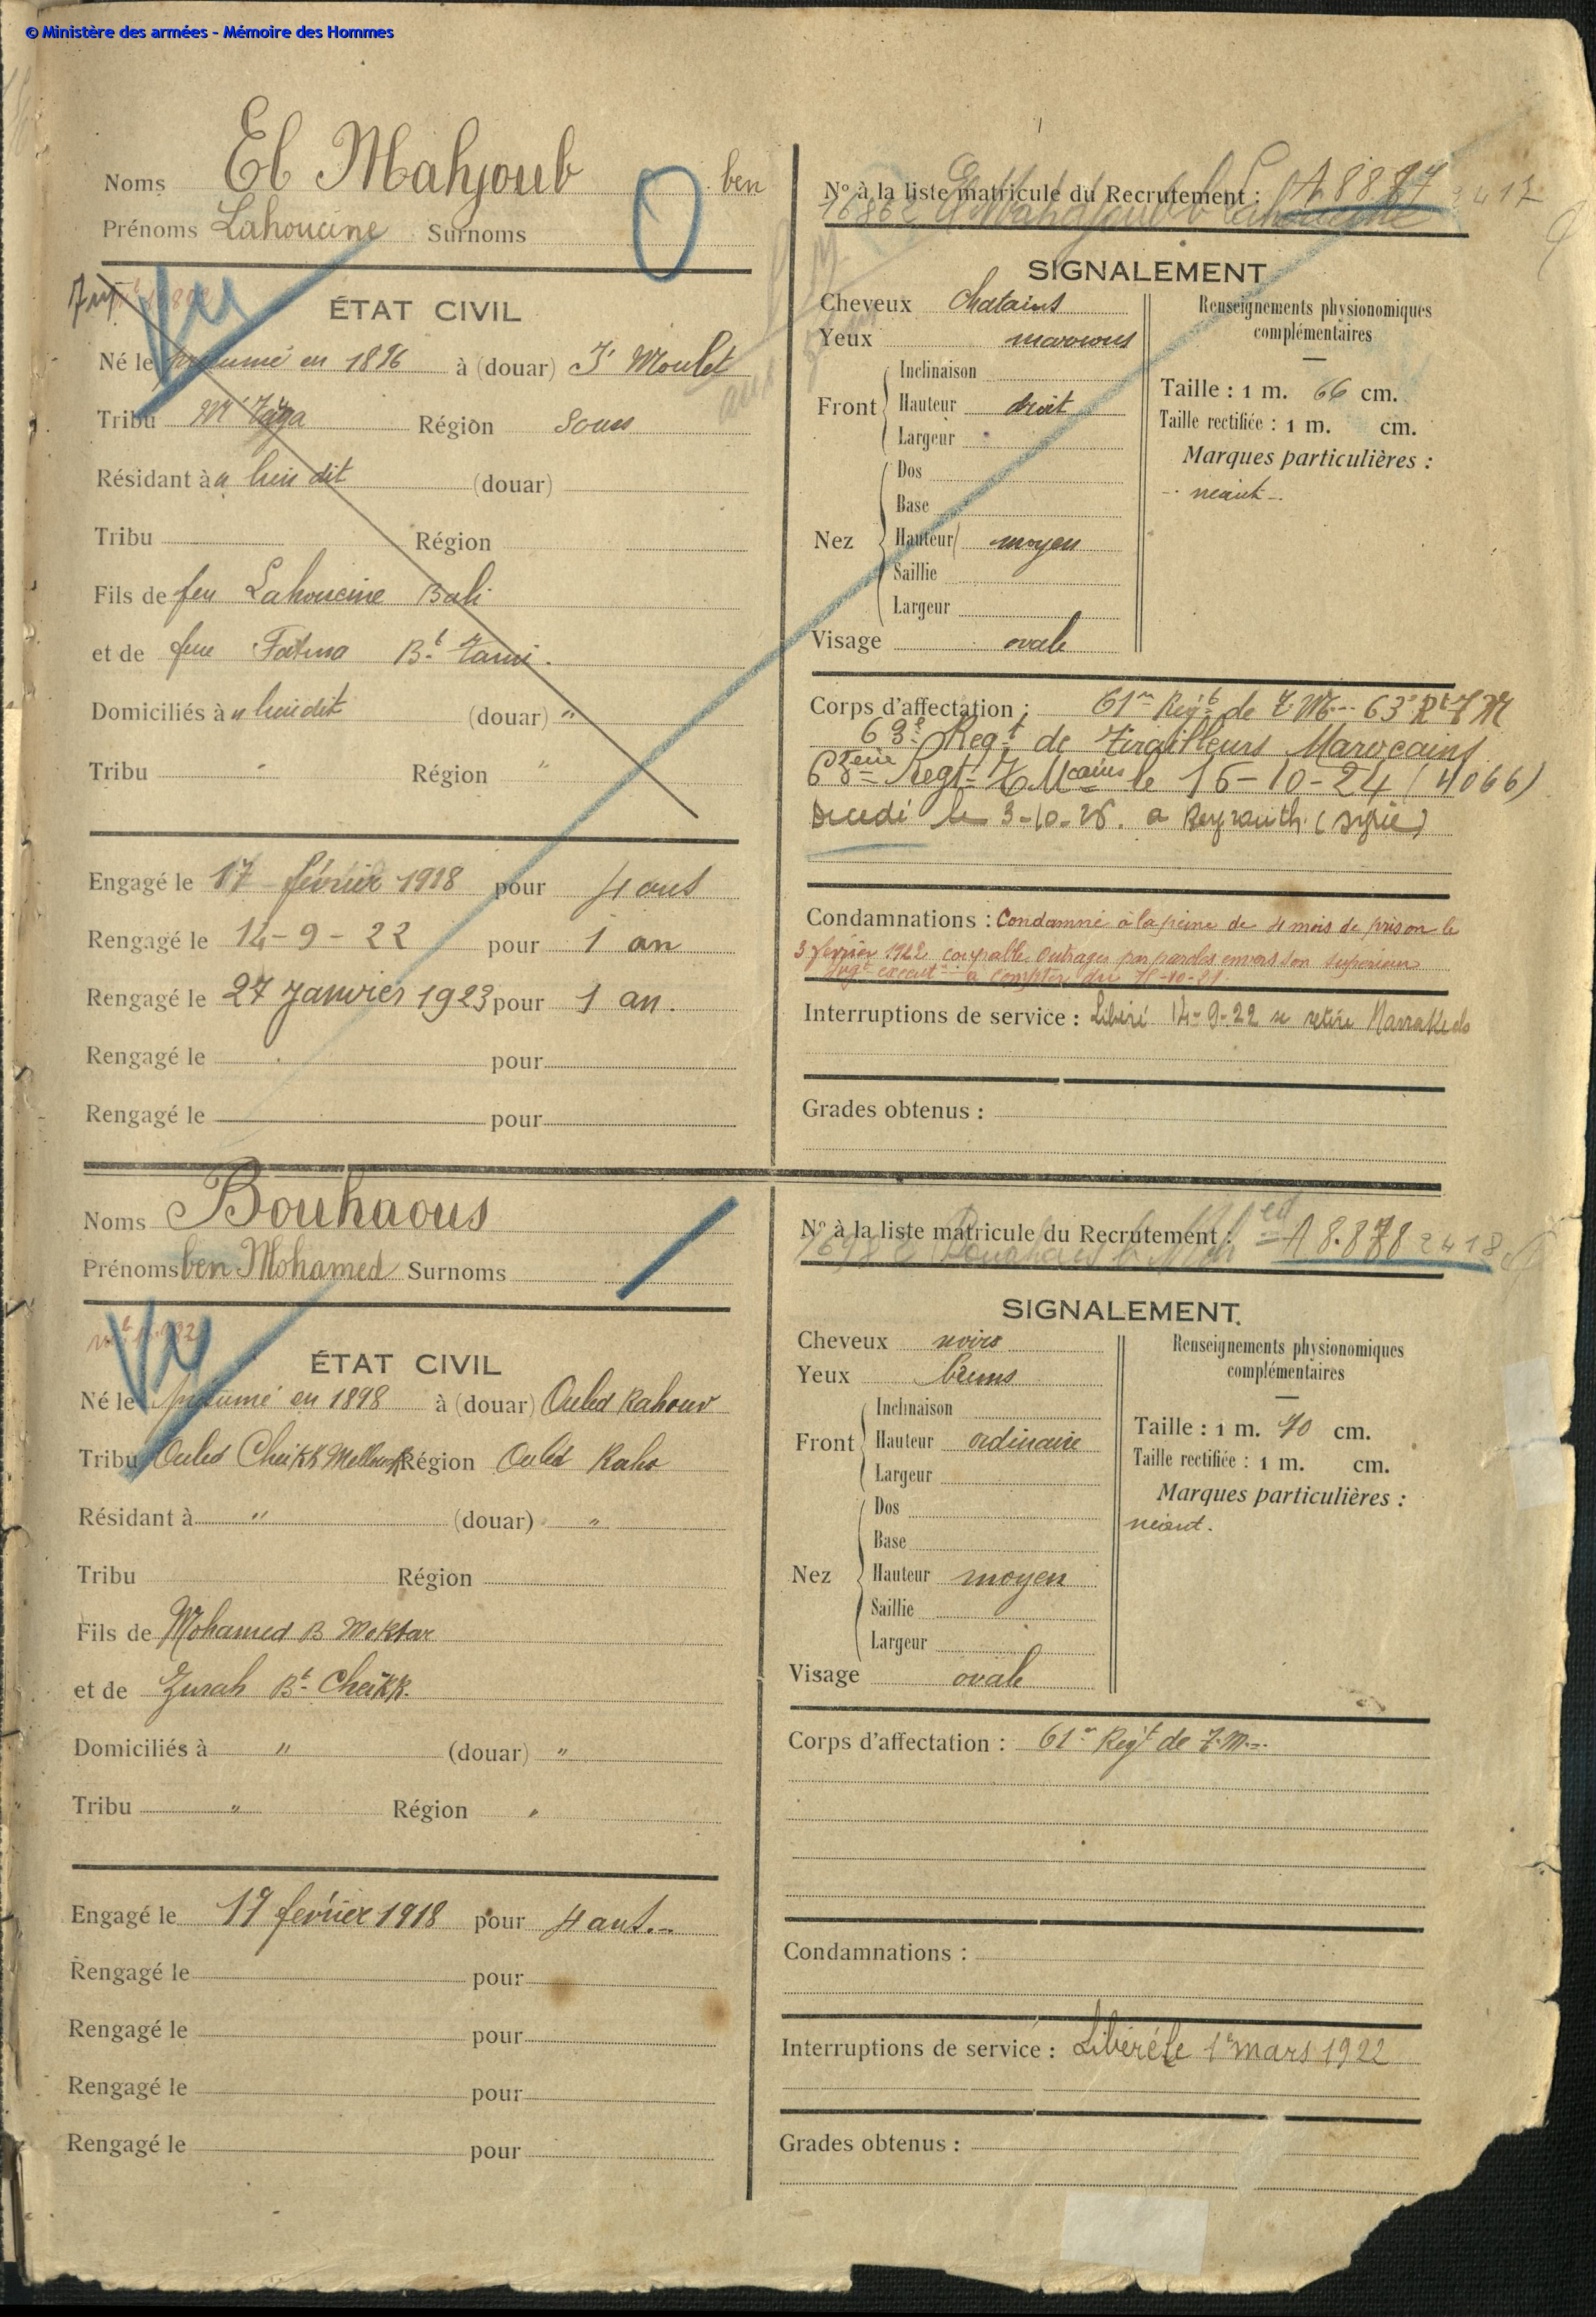 © Ministère des armées - Mémoire des Hommes
Noms El Mahjoub ben
Prénoms Lahoucine Surnoms
Vu
ÉTAT CIVIL
Né le présumé en 1896 à (douar) I' Moulet
Tribu Région Sous
Résidant à " lieu dit (douar)
Tribu Région
Fils de feu Lahoucine Bali
et de feue Fatma Bt Tami.
Domiciliés à " lieu dit (douar) "
Tribu " Région "
Engagé le 17 février 1918 pour 4 ans
Rengagé le 14-9-22 pour 1 an
Rengagé le 27 Janvier 1923 pour 1 an.
Rengagé le pour
Rengagé le pour
N° à la liste matricule du Recrutement : A 8877 2417
16862 El Mahdjoub b Lahoucine
SIGNALEMENT
Cheveux chatains
Yeux marrons
Front Inclinaison
Hauteur droit
Largeur
Nez Dos
Base
Hauteur moyen
Saillie
Largeur
Visage ovale
Renseignements physionomiques
complémentaires
Taille : 1 m. 66 cm.
Taille rectifiée : 1 m. cm.
Marques particulières :
- néant -.
Corps d'affectation : 61me Régt de T.M.-- 63e Rt T M
63e Regt de Tirailleurs Marocains
Regt T Mcains le 16-10-24 (4066)
Décédé le 3-10-26. a Beyrouth (Syrie)
Condamnations : Condamné à la peine de 4 mois de prison le
3 février 1922 coupable Outrages par paroles envers son supérieur
à compter du
Interruptions de service : Libéré 14-9-22 se retire Marrakech
Grades obtenus :
Noms Bouhaous
Prénoms ben Mohamed Surnoms
Vu
ÉTAT CIVIL
Né le présumé en 1898 à (douar) Ouled Rahouv
Tribu Ouled Cheikk Région Ouled Raho
Résidant à " (douar) "
Tribu Région
Fils de Mohamed B Moktar
et de Zurah Bt Cheikk.
Domiciliés à " (douar) "
Tribu " Région "
Engagé le 17 février 1918 pour 4 ans.-
Rengagé le pour
Rengagé le pour
Rengagé le pour
Rengagé le pour
N° à la liste matricule du Recrutement : A 8.878 2418
SIGNALEMENT.
Cheveux noirs
Yeux bruns
Front Inclinaison
Hauteur ordinaire
Largeur
Nez Dos
Base
Hauteur moyen
Saillie
Largeur
Visage ovale
Renseignements physionomiques
complémentaires
Taille : 1 m. 70 cm.
Taille rectifiée : 1 m. cm.
Marques particulières :
néant.
Corps d'affectation : 61me Régt de T.M.-
Condamnations :
Interruptions de service : Libéré le 1er mars 1922
Grades obtenus :